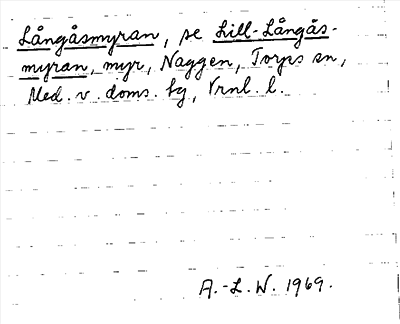 Långåsmyran, se Lill-Långås-
myran, myr, Naggen, Torps sn,
Med. v. doms. fg, Vrnl. l.
A.-L. W. 1969.